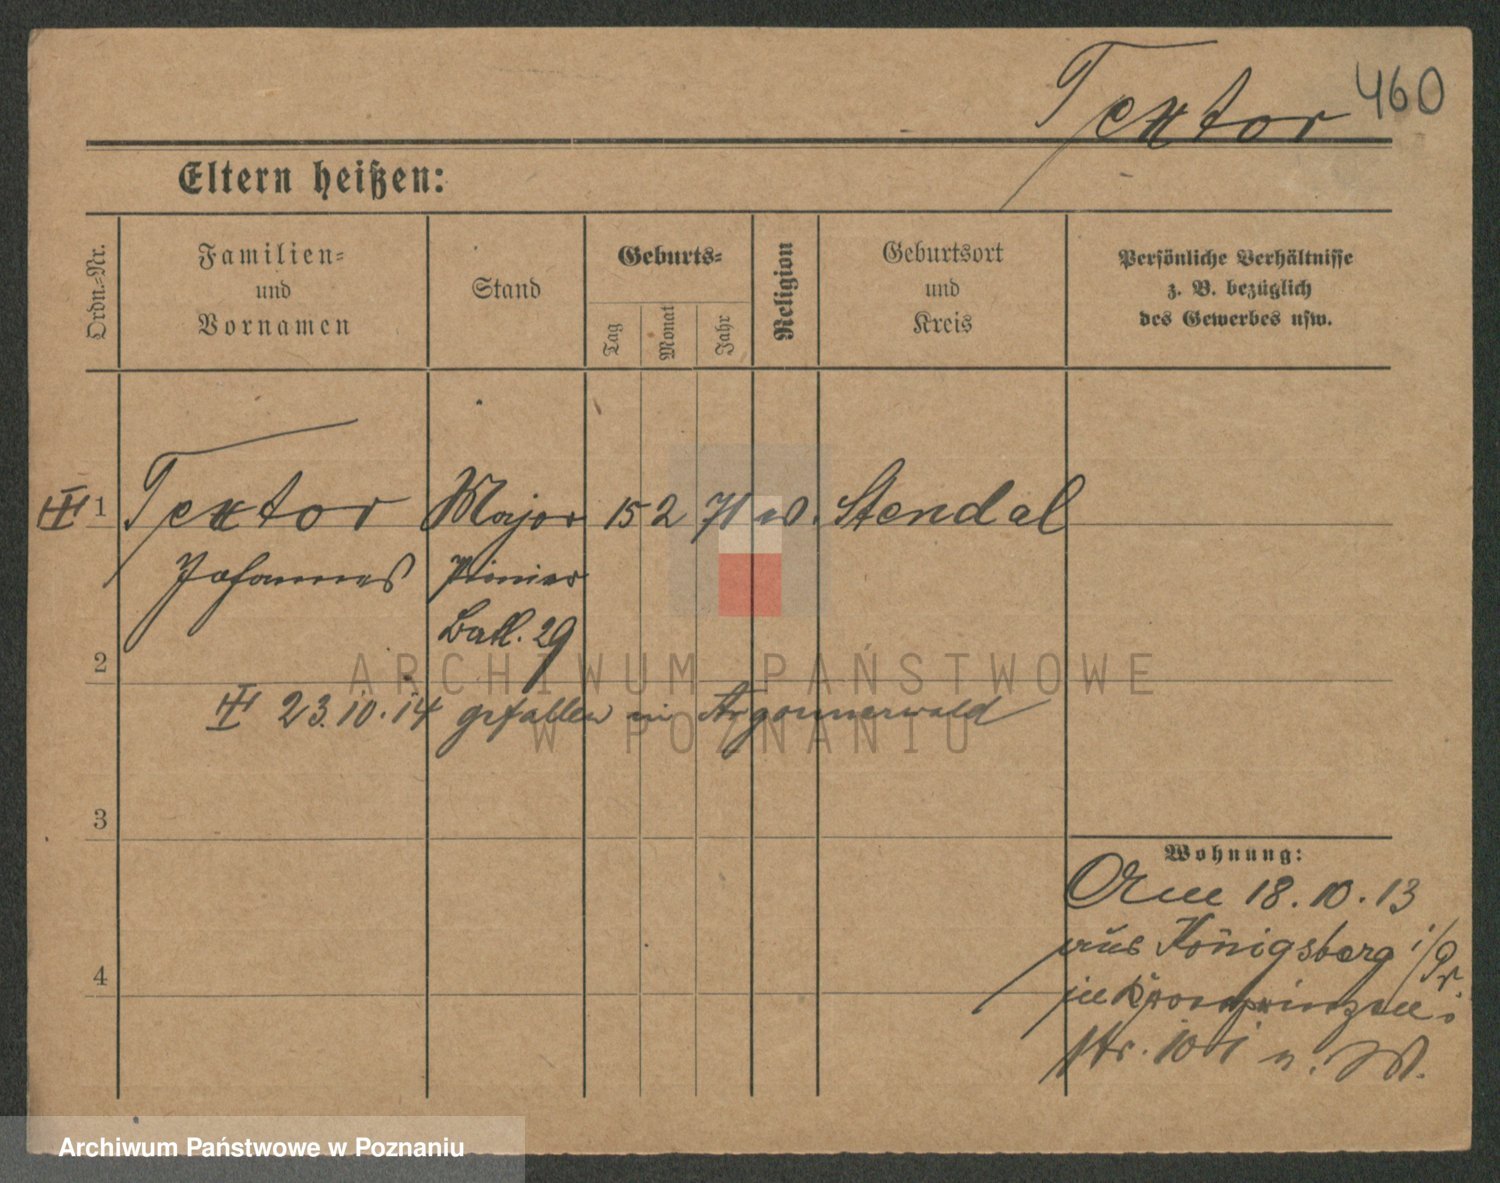 Textor 460
Eltern heißen:
Ordn.-Nr.
Familien-
und
Vornamen
Stand
Geburts-
Tag
Monat
Jahr
Religion
Geburtsort
und
Kreis
Persönliche Verhältnisse
z. B. bezüglich
des Gewerbes usw.
1 Textor Major 15 2 71 Stendal
Johannes Pionier
Batl. 29
2
23.10.14 gefallen im Argonnerwald
3
Wohnung:
18.10.13
aus Königsberg i/Pr.
4
Kronprinzen
str. 101
ARCHIWUM PAŃSTWOWE
W POZNANIU
Archiwum Państwowe w Poznaniu